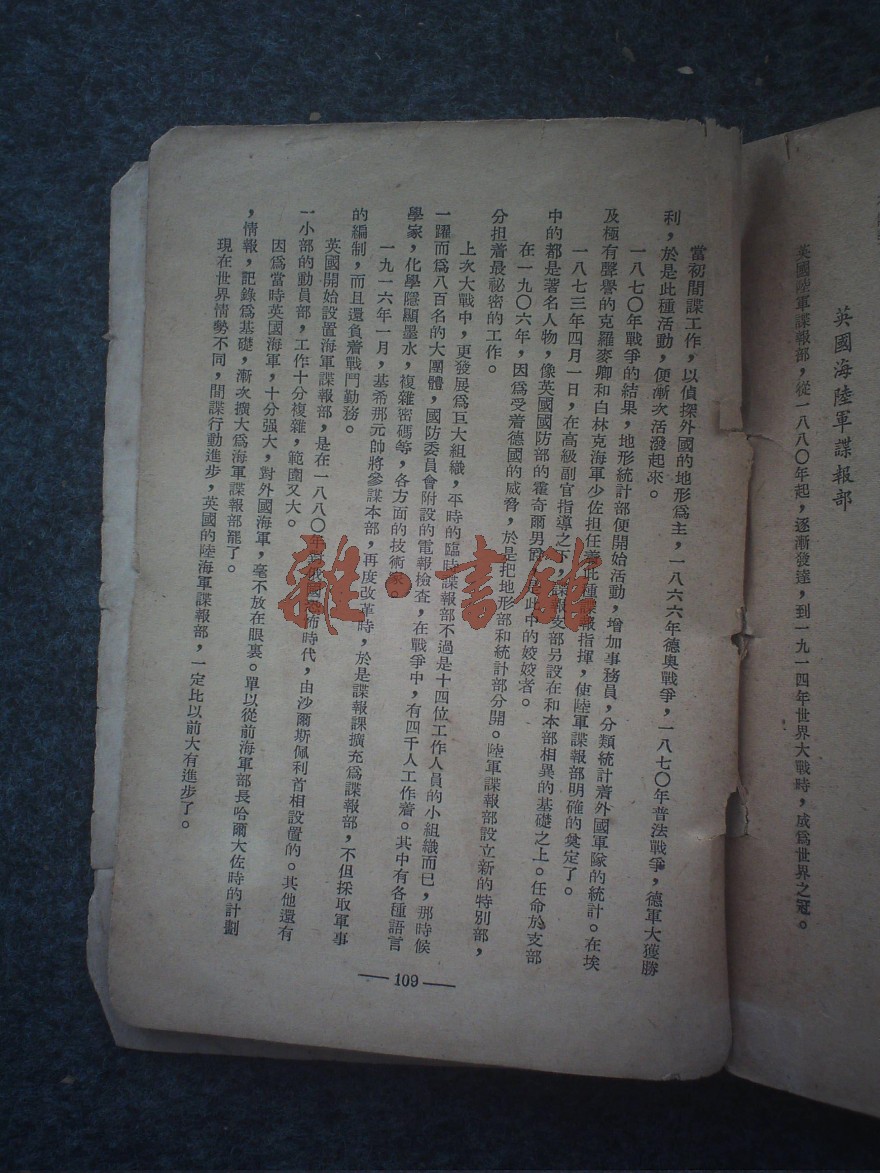 英國海陸軍諜報部
英國陸軍諜報部，從一八八〇年起，逐漸發達，到一九一四年世界大戰時，成爲世界之冠。
當初間諜工作，以偵探外國的地形爲主，一八六六年德奧戰爭，一八七〇年普法戰爭，德軍大獲勝
利，於是此種活動，便漸次活潑起來。
一八七〇年戰爭的結果，地形統計部便開始活動，增加事務員，分類統計着外國軍隊的統計。在埃
及極有聲譽的克羅麥卿和白林克海軍少佐担任着此種諜報指揮，使陸軍諜報部明確的奠定了。
一八七三年四月一日，在高級副官指導之下，諜報支部另設在和本部相異的基礎之上。任命於支部
中的都是著名人物，像英國國防部的霍奇爾男爵，是此中的姣姣者。
在一九〇六年，因爲受着德國的威脅，於是把地形部和統計部分開。陸軍諜報部設立新的特別部，
分担着最祕密的工作。
上次大戰中，更發展爲互大組織，平時的臨時諜報部不過是十四位工作人員的小組織而已，那時候
一躍而爲八百名的大團體，國防委員會附設的電報檢查，在戰爭中，有四千人工作着。其中有各種語言
學家，化學隱顯墨水，複雜密碼等，各方面的技術家。
一九一六年一月，基希那元帥將參謀本部，再度改革時，於是諜報課擴充爲諜報部，不但採取軍事
的編制，而且還負着戰鬥勤務。
英國開始設置海軍諜報部，是在一八八〇年對俄國恐怖時代，由沙爾斯佩利首相設置的。其他還有
一小部的動員部，工作十分複雜，範圍又大。
因爲當時英國海軍，十分强大，對外國海軍，毫不放在眼裏。單以從前海軍部長哈爾大佐時的計劃
，情報，記錄爲基礎，漸次擴大爲海軍諜報部罷了。
現在世界情勢不同，間諜行動進步，英國的陸海軍諜報部，一定比以前大有進步了。
—109—
雜·書館